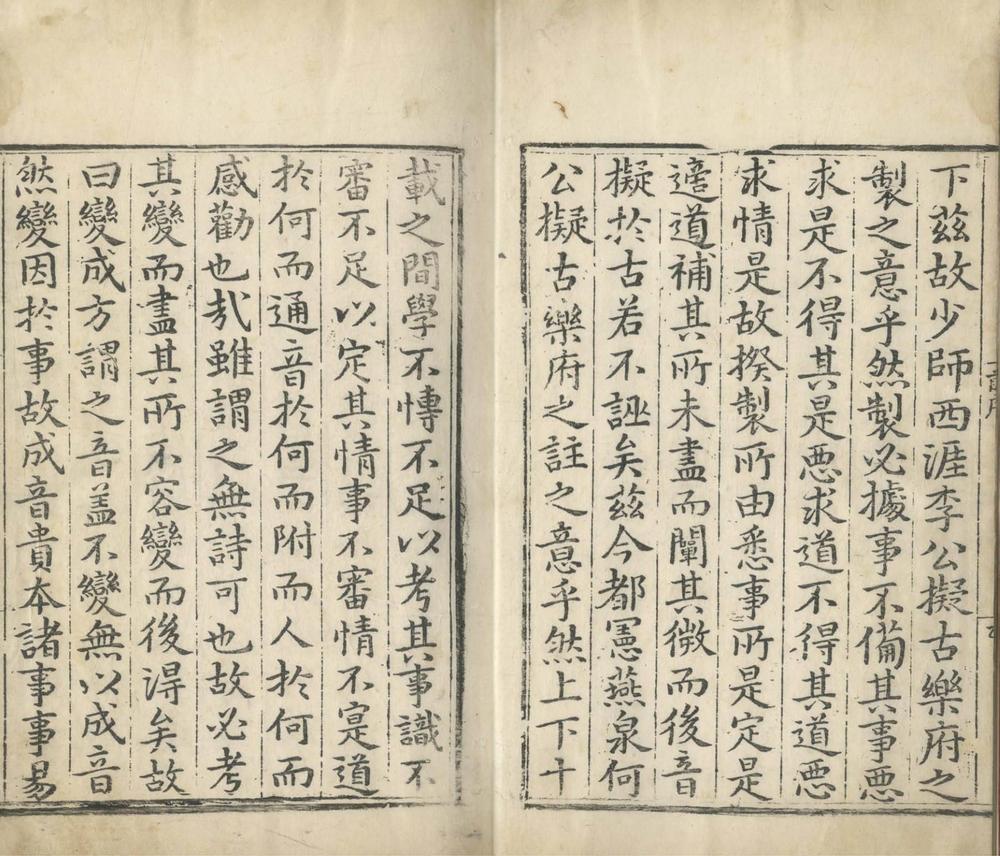 下茲故少師西涯李公擬古樂府之
製之意乎然製必據事不備其事惡
求是不得其是惡求道不得其道惡
求情是故揆製所由悉事所是定是
適道補其所未盡而闡其微而後音
擬於古若不誣矣茲今都憲燕泉何
公擬古樂府之註之意乎然上下十
載之間學不慱不足以考其事識不
審不足以定其情事不審情不寔道
於何而通音於何而附而人於何而
感勸也㢤雖謂之無詩可也故必考
其變而盡其所不容變而後得矣故
曰變成方謂之音盖不變無以成音
然變因於事故成音貴本諸事事易